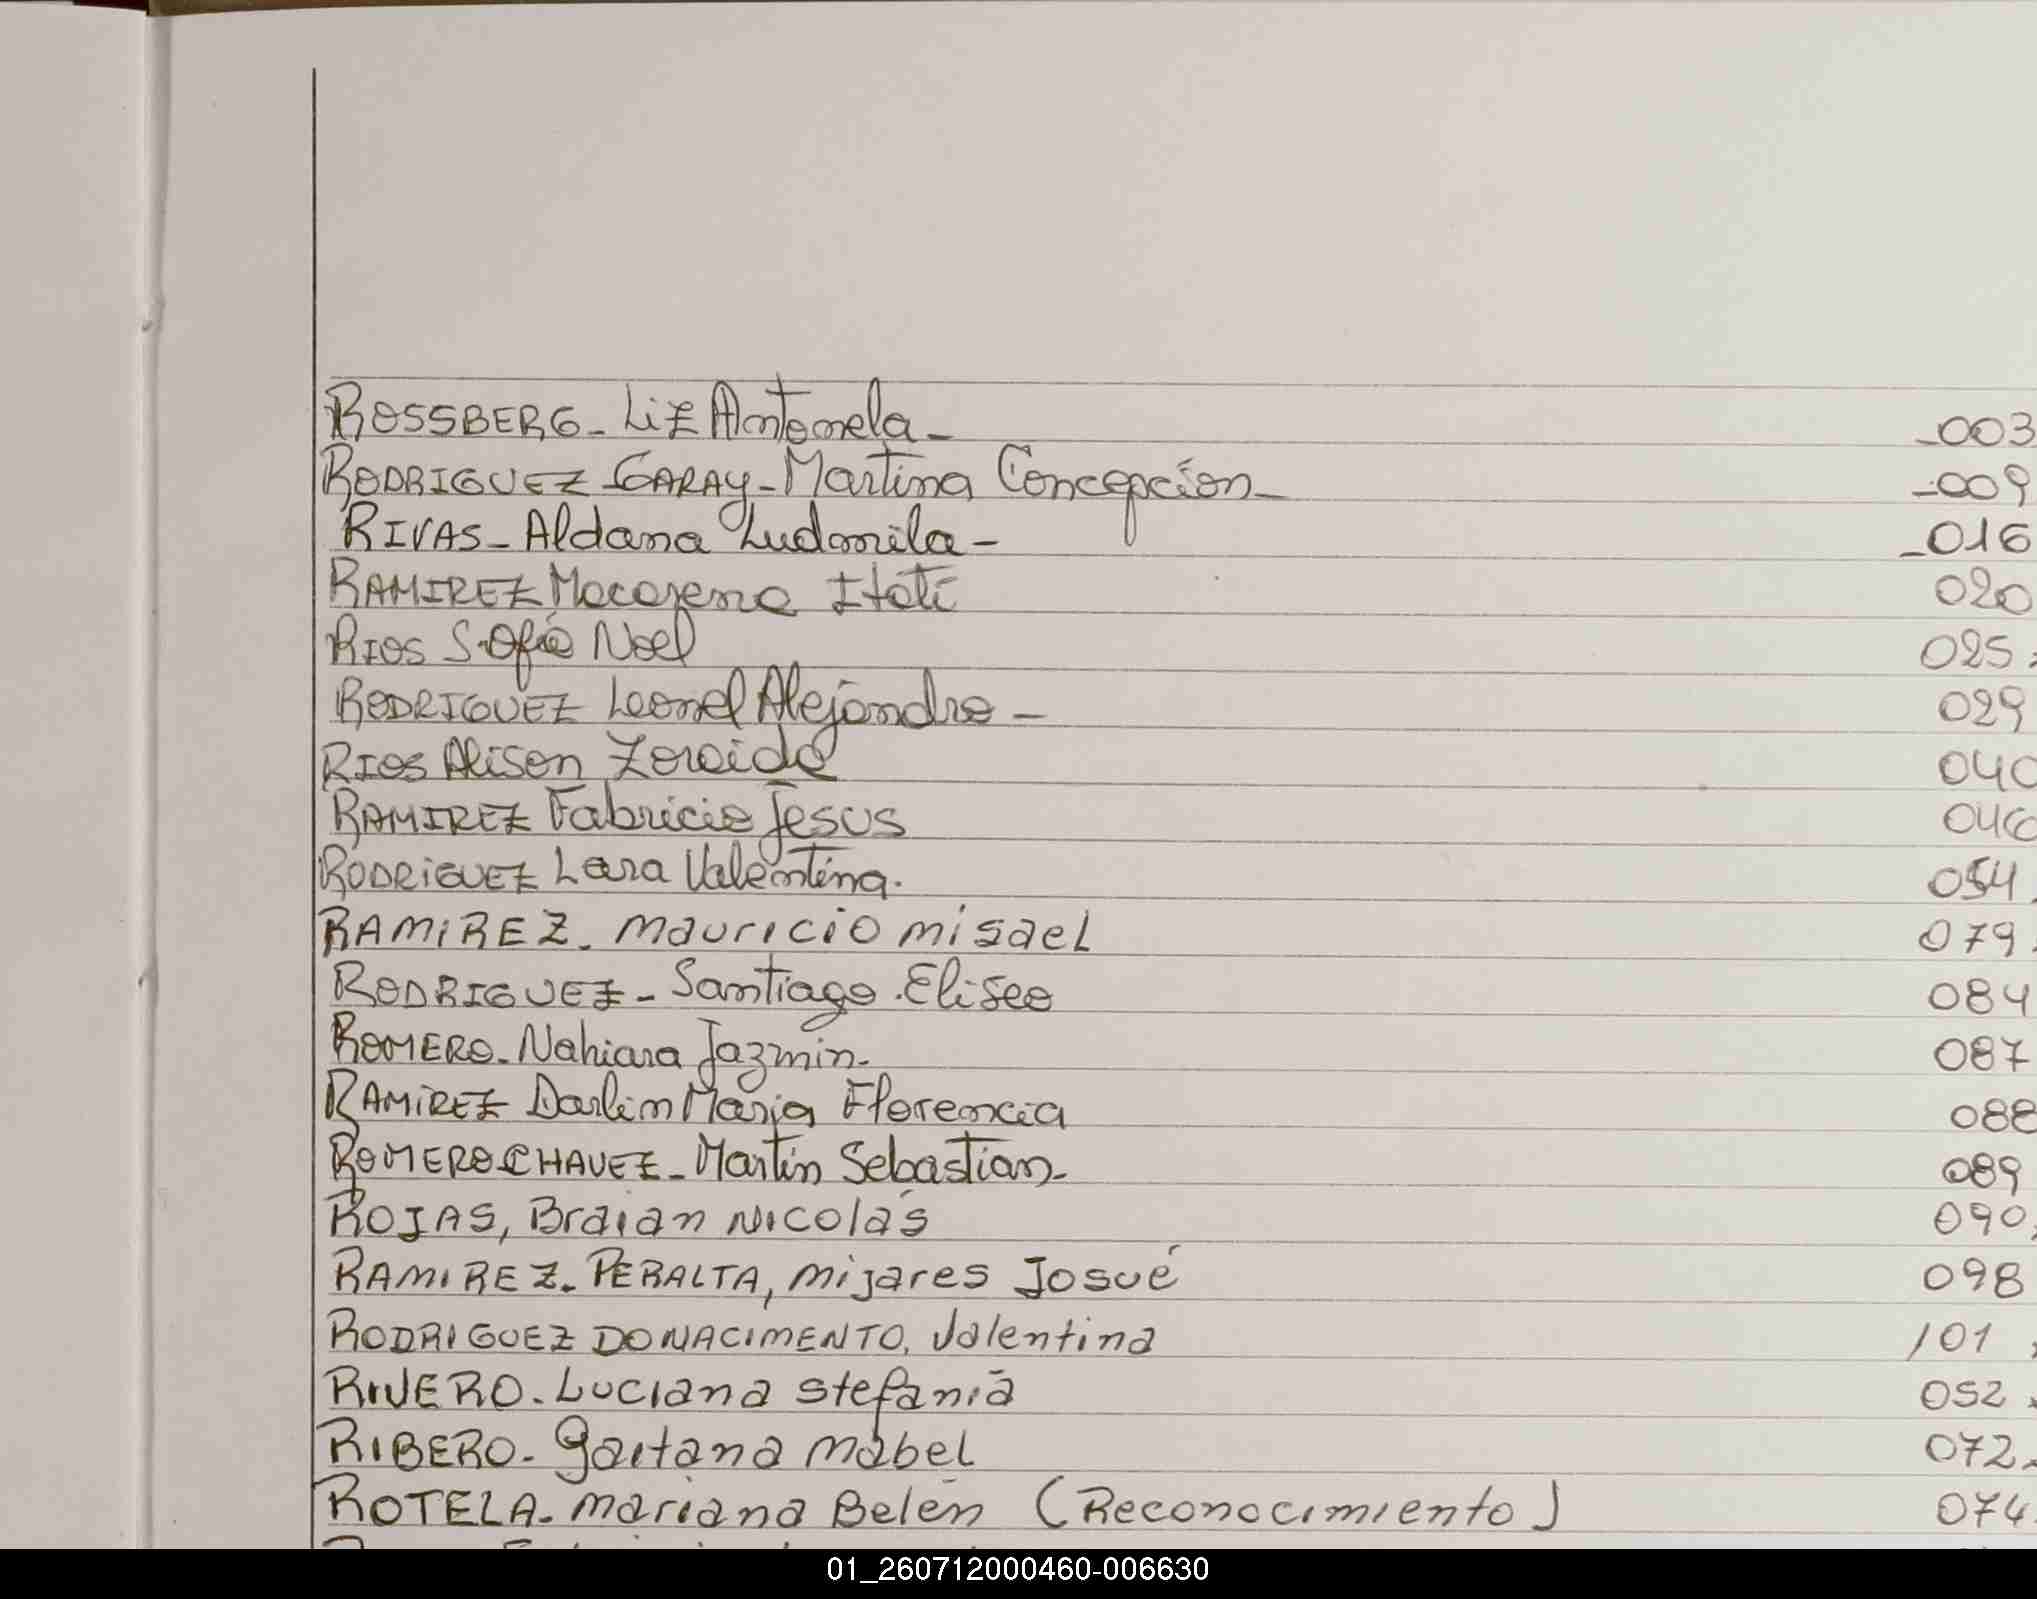 ROSSBERG - Liz Antonela - _003
RODRIGUEZ GARAY - Martina Concepción - _009
RIVAS - Aldana Ludmila - _016
RAMIREZ Macarena Itatí 020
RIOS Sofía Noel 025
RODRIGUEZ Leonel Alejandro - 029
RIOS Alison Zoraida 040
RAMIREZ Fabricio Jesus 046
RODRiGUEZ Lara Valentina. 054
RAMiREZ. Mauricio misael 079
RODRIGUEZ - Santiago Eliseo 084
ROMERO - Nahiara Jazmin - 087
RAMiREZ Darlin Maria Florencia 088
ROMERO CHAVEZ - Martin Sebastian - 089
ROJAS, Braian Nicolás 090
RAMIREZ. PERALTA, Mijares Josué 098
RODRIGUEZ DONACIMENTO, Valentina 101
RIVERO. Luciana Stefanía 052
RIBERO. Gaitana Mabel 072
ROTELA. Mariana Belén (Reconocimiento) 074
01_260712000460-006630